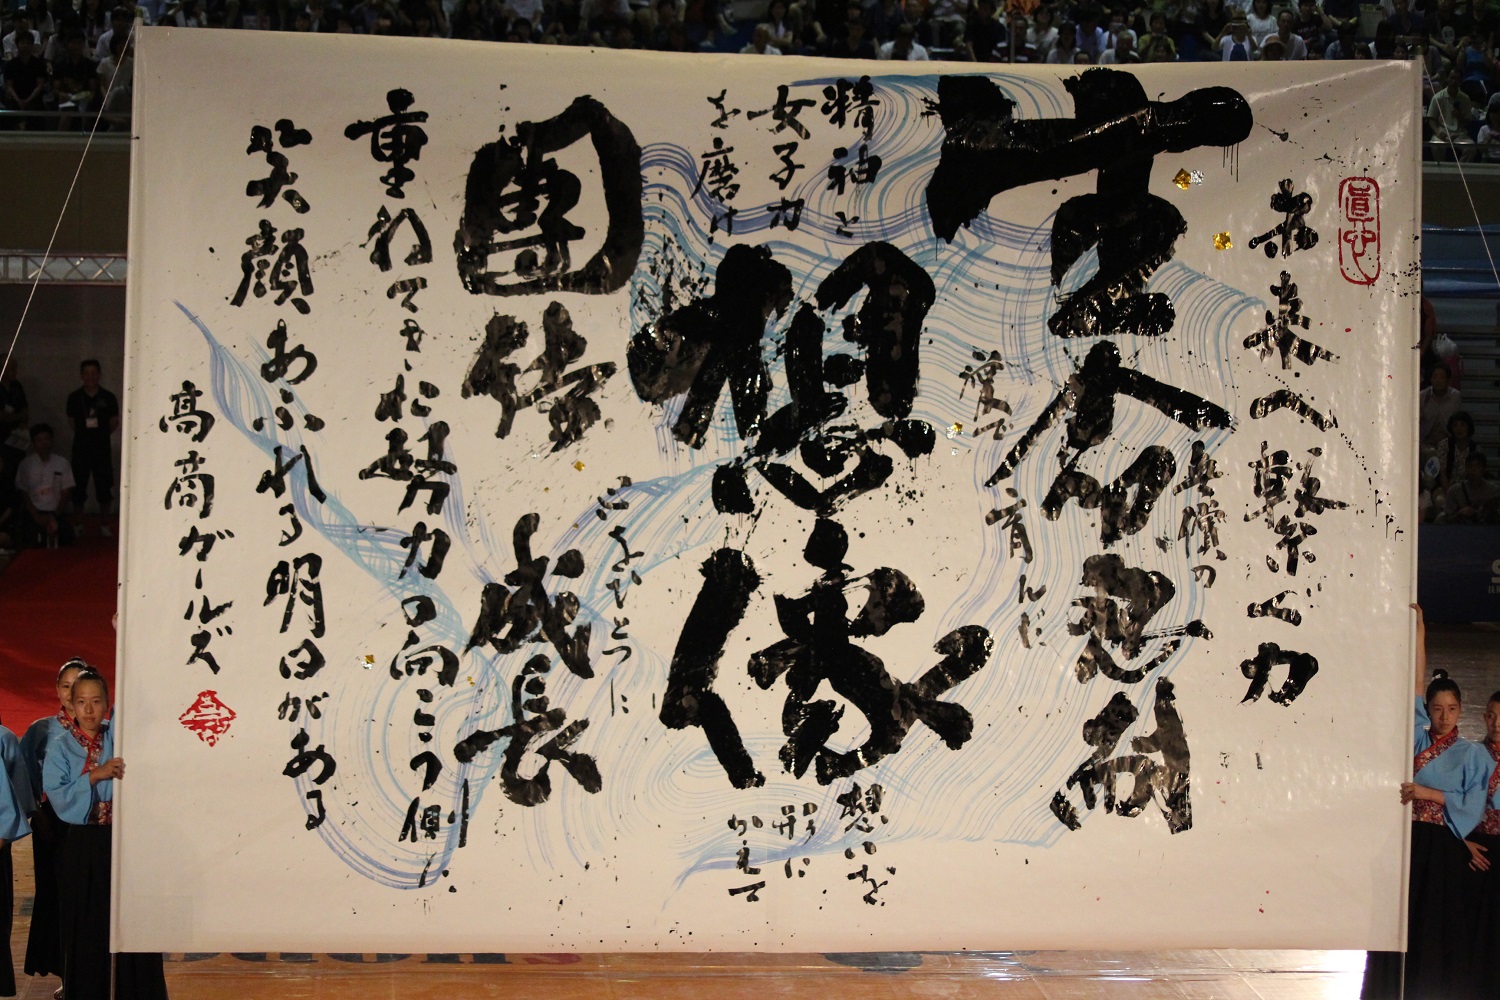 眞心
未来へ繋ぐ力
無償の
愛で
育んだ
精神と
女子力
を磨け
想像
想いを
形に
かえて
團結
心をひとつに
成長
重ねてきた努力の向こう側に
笑顔あふれる明日がある
高商ガールズ